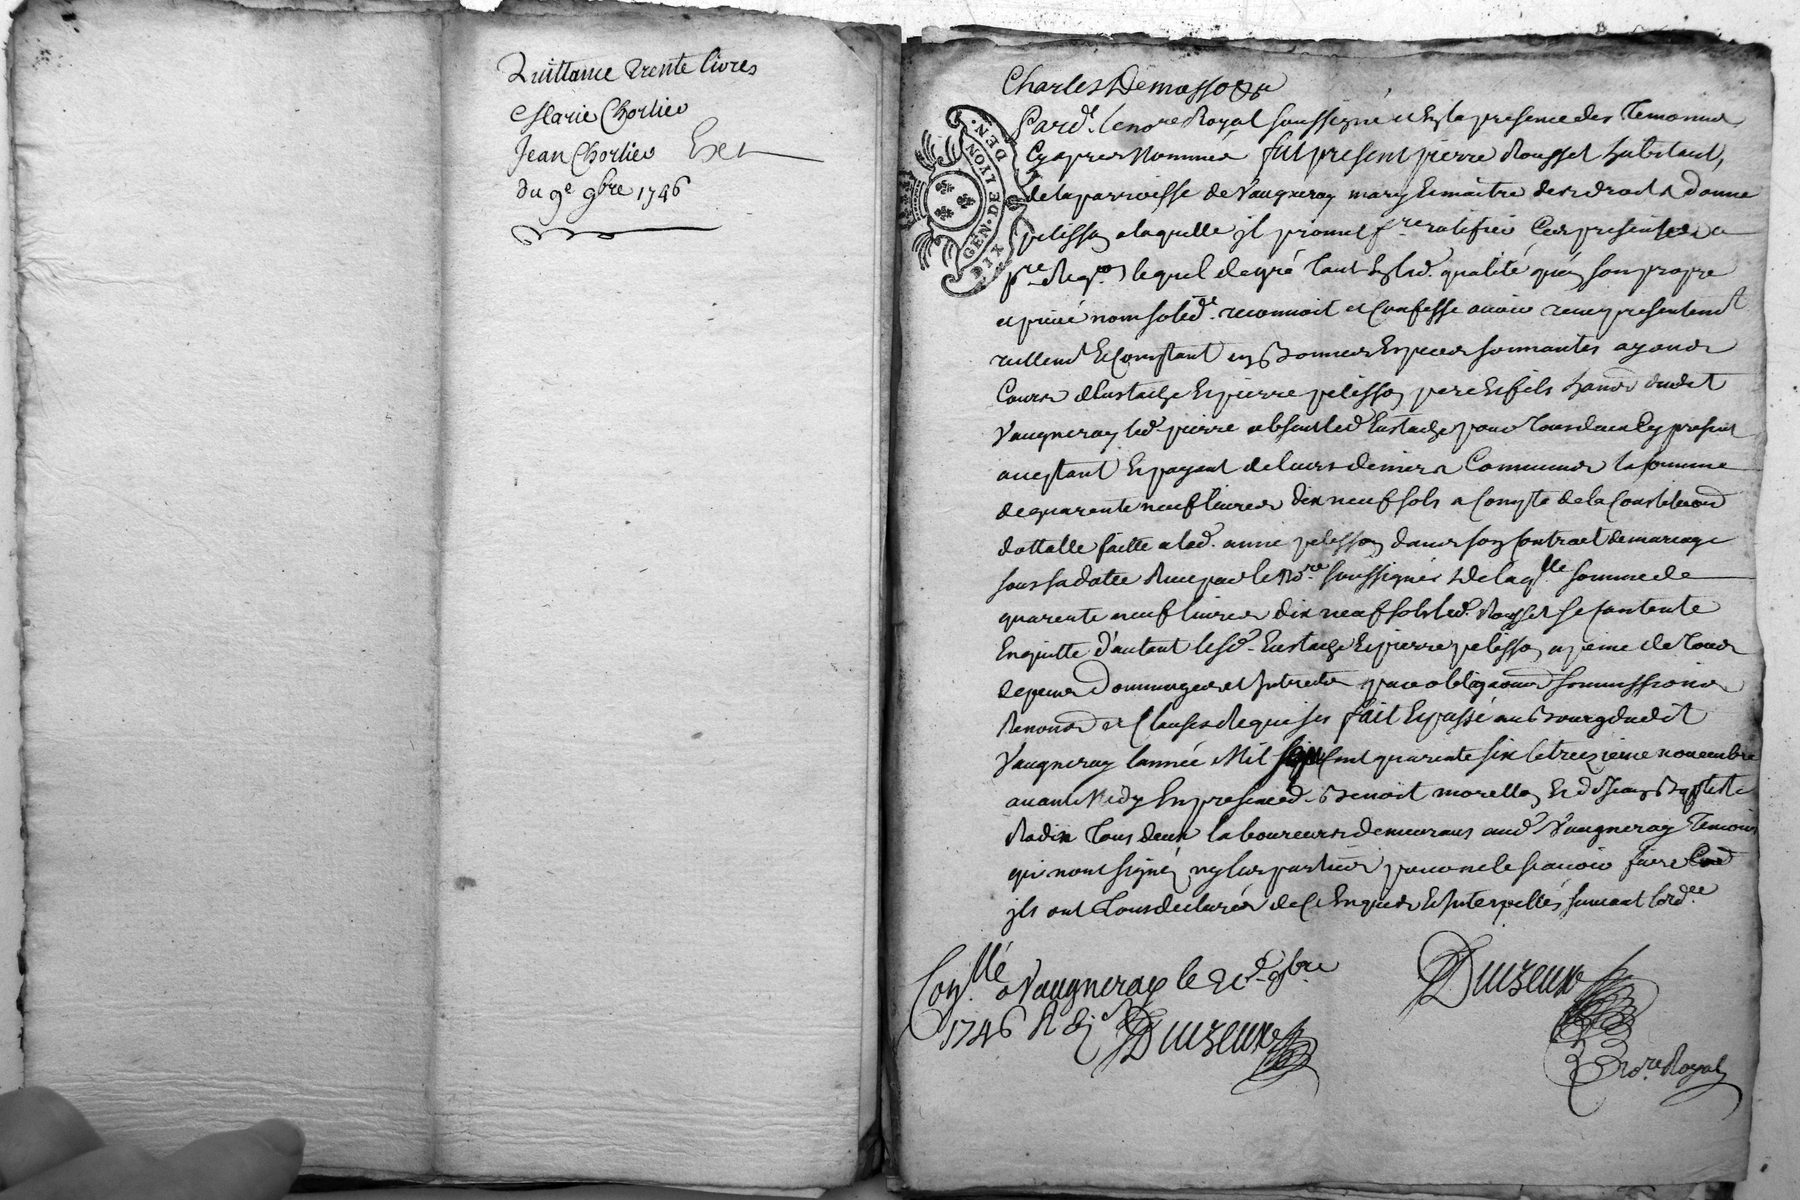 Quittance trente livres
Marie Chorlier
Jean Chorlier
du 9e 9bre 1746
GÉN. DE LYON
DIX DEN.
Charles Demasso
Pard.t le no.re Royal soussigné et En la presence des Temoins
Cy apres Nommés fut present pierre Rousset habitant
de la parroisse de Vaugneray mary Et maitre des droits danne
pelisson a laquelle jl promet f.re ratifier Ces presentes a
lequel de gré tant En lad. qualité qu'en son propre
et privé nom solid.t reconnoit et Confesse avoir receu presentem.t
reellem.t Et Comptant en Bonnes Especes sonnantes ayant
Cours d'Eustache Et pierre pelisson pere Et fils hans dudit
Vaugneray led. pierre absent led Eustache pour tous deux Cy present
acceptant Et payant de leurs deniers Communs la somme
de quarente neuf livres dix neuf sols a Compte de la Constitution
dottalle faitte a lad. anne pelisson dans son Contract de mariage
sous sa datte Receu par le No.re soussigné de laq.lle somme de
quarente neuf livres dix neuf sols led. Rousset se Contente
En quitte d'autant lesd. Eustache Et pierre pelisson a peine de tous
depens Dommages et Jnterets par obligaons soumissions
Renons et Clauses Requises fait Et passé au Bourg dudit
Vaugneray lannée Mil sept Cent quarente six le treizieme novembre
avant Midy En presence de Benoit morellon Et de Jean Baptiste
Radix tous deux laboureurs demeurans aud. Vaugneray Temoins
qui n'ont signé ny les parties pour ne le scavoir faire
jls ont tous declarés de Ce Enquis Et Jnterpellés suivant lord.ce
Con.llé a Vaugneray le 9bre
1746 R
Duizeux
Duizeux
No.re Royal